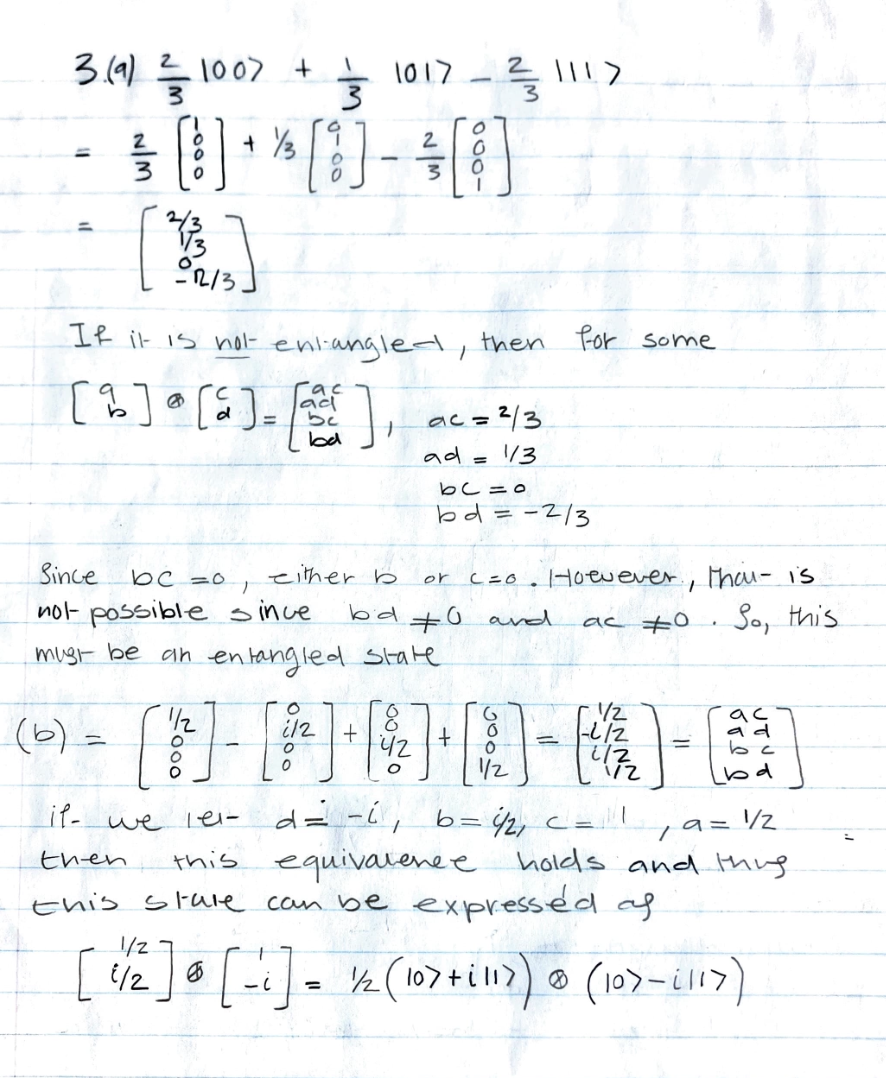 3.(a) 2/3 |00> + 1/3 |01> - 2/3 |11>
= 2/3 [1 0 0 0] + 1/3 [0 1 0 0] - 2/3 [0 0 0 1]
= [2/3 1/3 0 -2/3]
If it is not entangled, then for some
[a b] ⊗ [c d] = [ac ad bc bd], ac = 2/3
ad = 1/3
bc = 0
bd = -2/3
Since bc = 0, either b or c = 0. However, that is
not possible since bd ≠ 0 and ac ≠ 0. So, this
must be an entangled state
(b) = [1/2 0 0 0] - [0 i/2 0 0] + [0 0 i/2 0] + [0 0 0 1/2] = [1/2 -i/2 i/2 1/2] = [ac ad bc bd]
if we let d = -i, b = i/2, c = 1, a = 1/2
then this equivalence holds and thus
this state can be expressed as
[1/2 i/2] ⊗ [1 -i] = 1/2 (|0> + i|1>) ⊗ (|0> - i|1>)